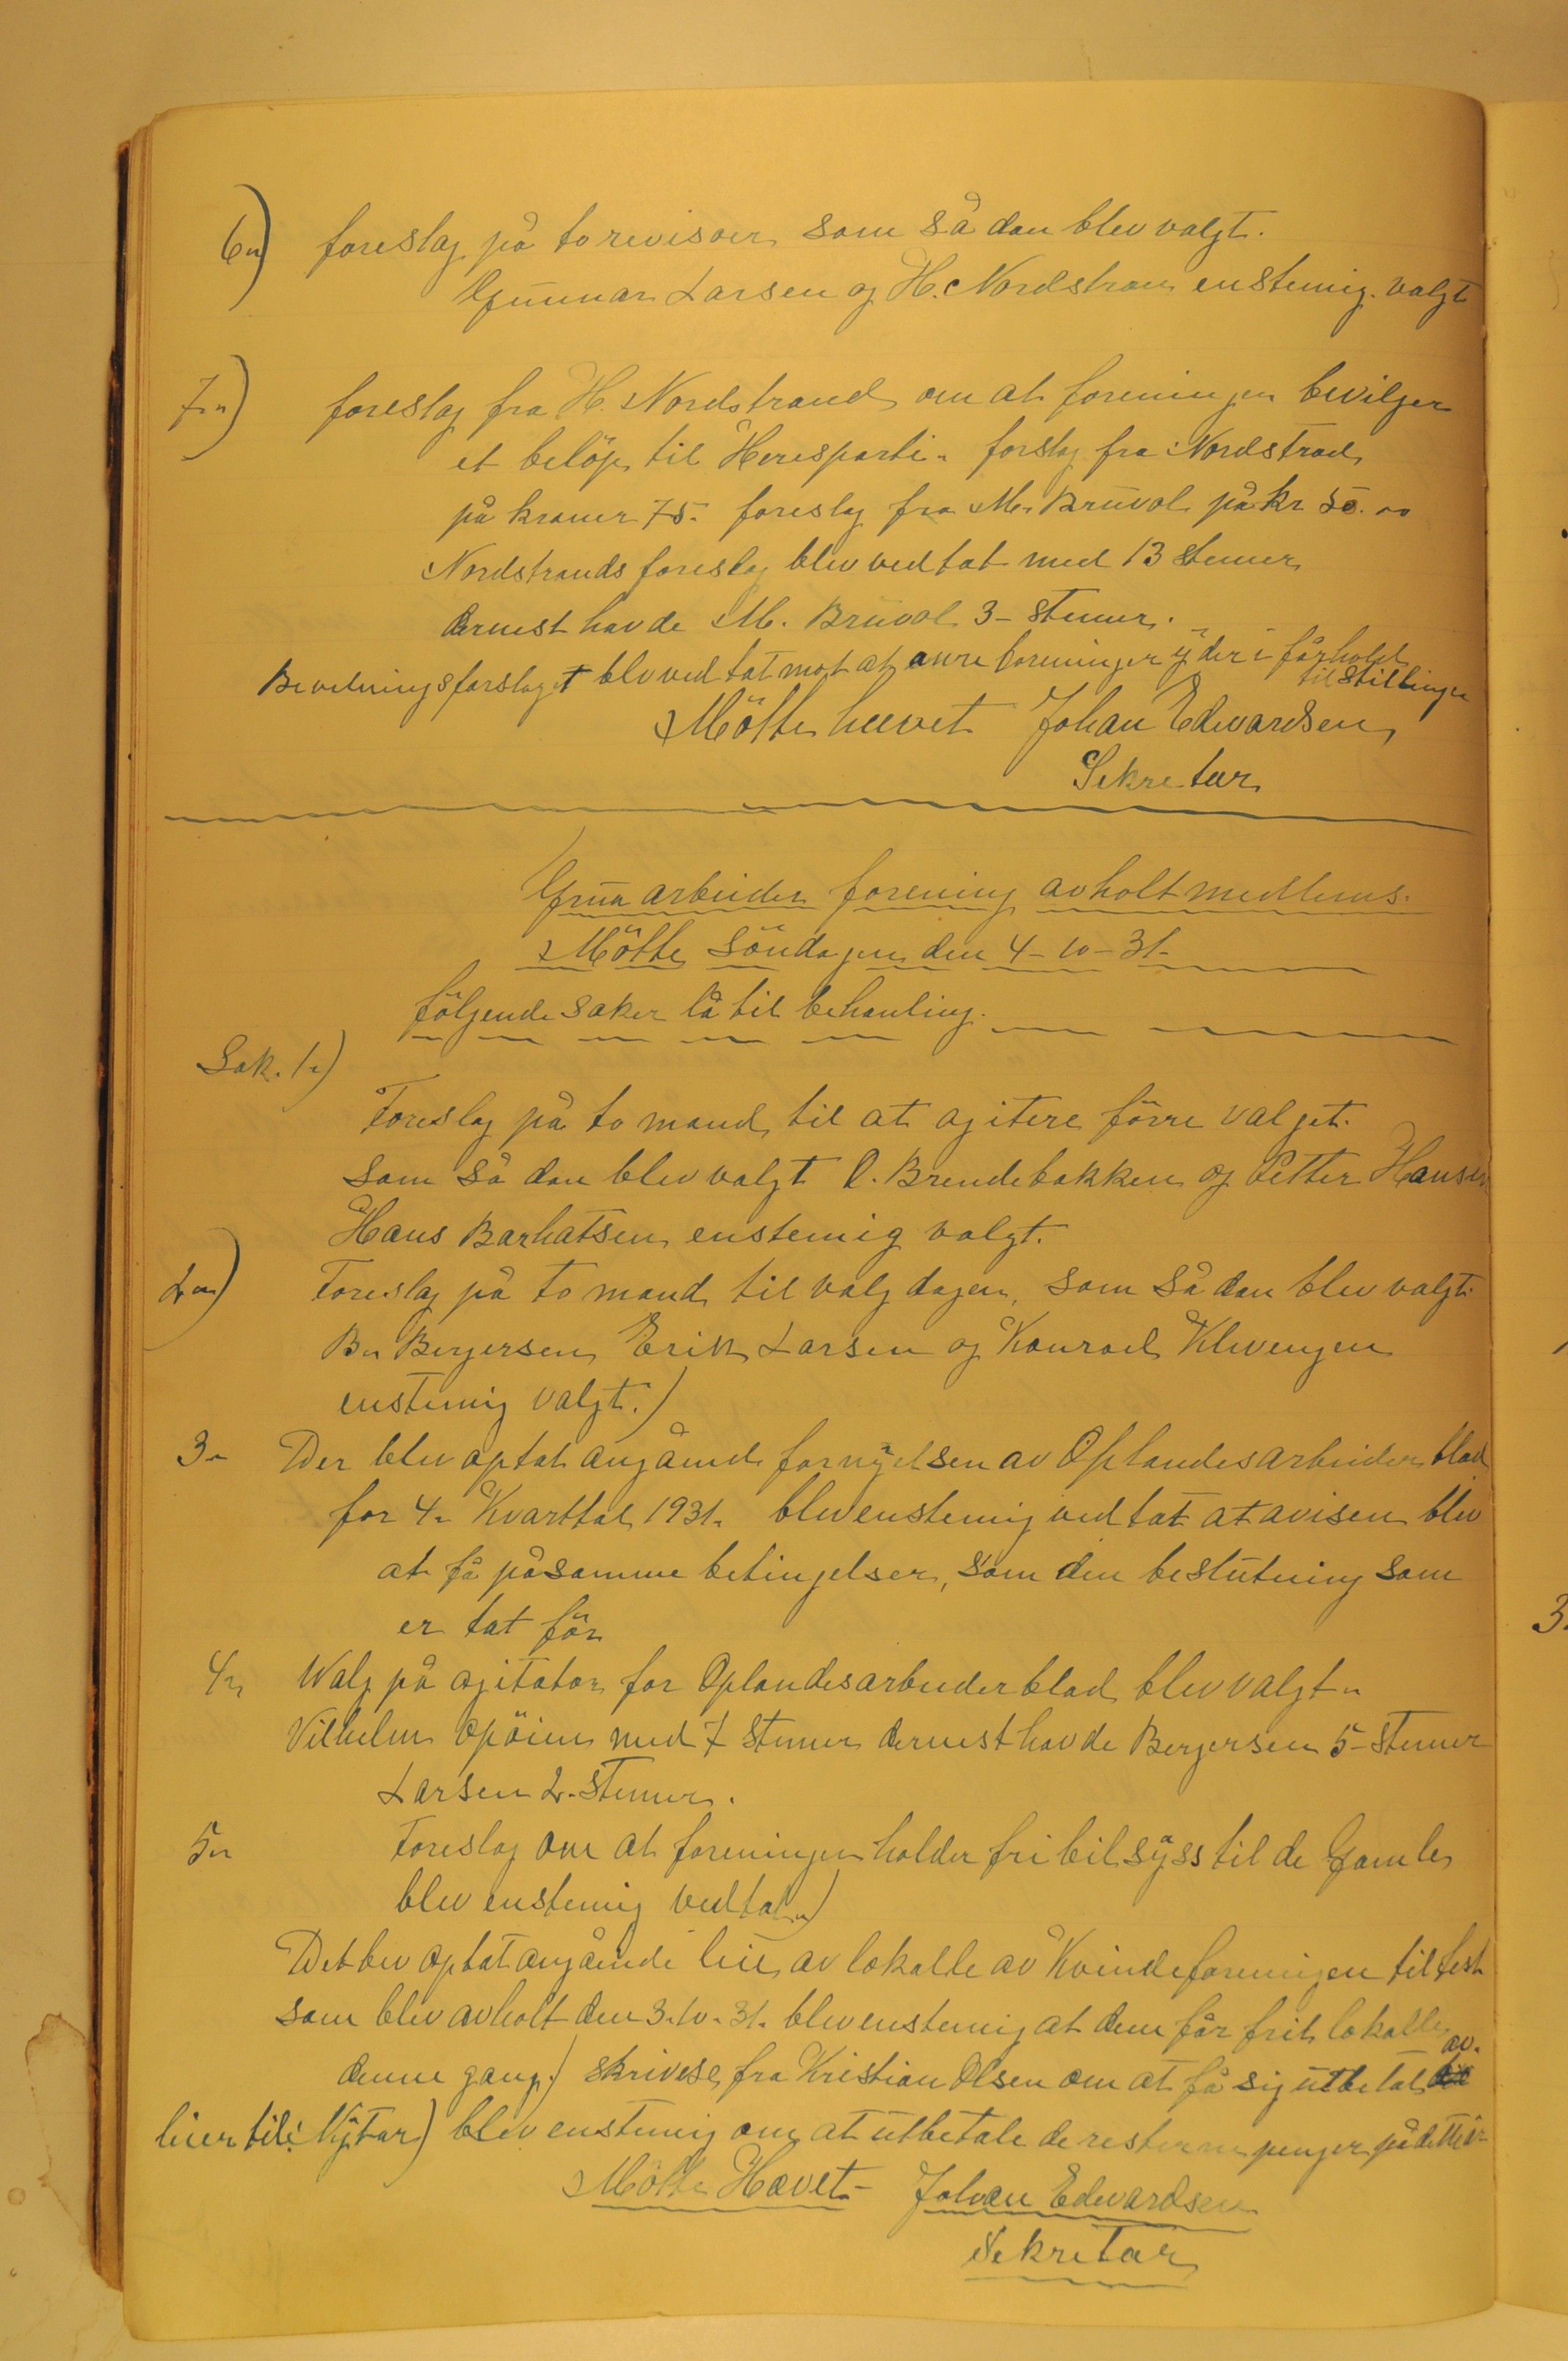 6") foreslag på to revisoer som så dan blev valgt.
Gunnar Larsen og H. Nordstran enstemig. valgt
7") foreslag fra H. Nordstrand om at foreningen bevilger
et belöp til Heresparti. forslag fra Nordstrad
på kroner 75. foreslag fra M. Bruvol på kr 50.00
Nordstrands foreslag blev vedtat med 13 stemer
dernest havde M. Bruvol 3- stemer.
Bevelningsforslaget blev vedtat mot at anre foreninger yder i förhold
til stillingen
Mötte heevet Johan Edwardsen
Sekretær
Grua arbeider forening avholt medlems.
Mötte Söndagen den 4-10-31-
fölgende saker lå til behanling.
Sak. 1.)
Foreslag på to mand til at agitere förre valget.
som så dan blev valgt O. Brendebakken og Petter Hansen
Hans Barhatsen enstemig valgt.
2")
Foreslag på to mand til valg dagen, som så dan blev valgt
B. Bergersen Erik Larsen og Konrad Klevengen
enstemig valgt.)
3- Der blev optat angåend fornyelsen av Oplandesarbeider blad
for 4. Kvarttal 1931. blev enstemig vedtat at avisen blev
at få på samme betingelser, som den beslutning som
er tat för
4. Walg på agitator for Oplandesarbeiderblad blev valgt.
Vilhelm Opöien med 7 stemer dernest havde Bergersen 5- stemer
Larsen 2. stemer.
5. Foreslag om at foreningen holder fri bilsyss til de Gamle
blev enstemig vedtat.)
Det blev optat angåinde leie av lokalle av Kvindeforeningen til fest
som blev avholt den 3.10.31. blev enstemig at dem får frit lokalle
denne gang.) skrivese fra Kristian Olsen om at få sig utbetalt av.
leier til: Nytar) blev enstemig om at utbetale de resterne penger på dette år
Mötte Hævet- Johan Edwardsen
Sekretær